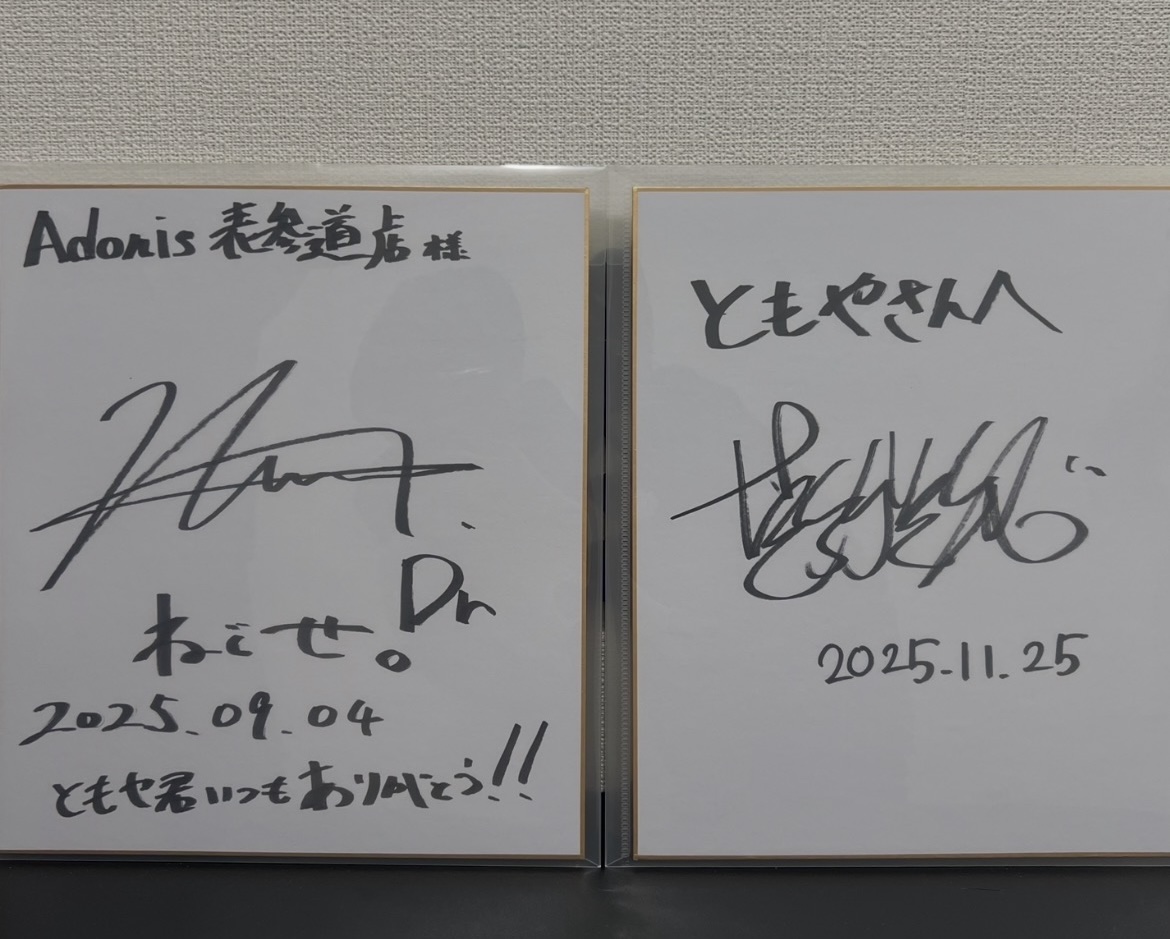 Adonis 表参道店 様
Dr
ねぐせ。
2025.09.04
ともや君いつもありがとう!!
ともやさんへ
2025.11.25